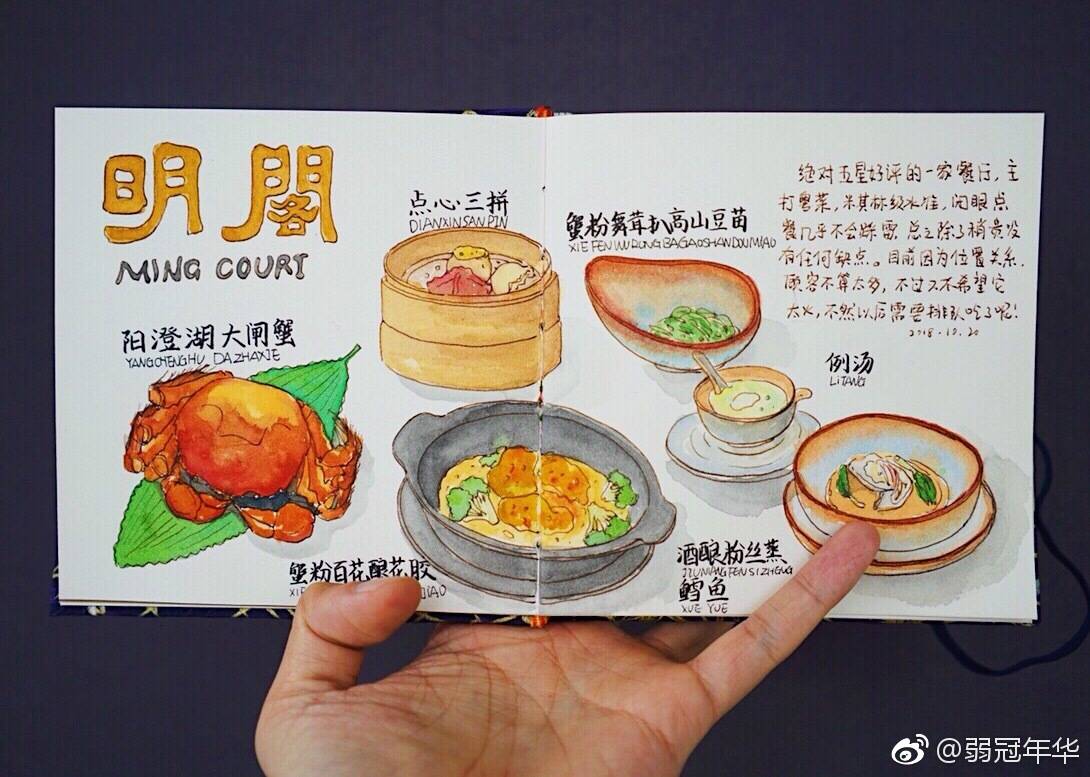 明閣
MING COURT
点心三拼
DIANXINSANPIN
阳澄湖大闸蟹
YANGCHENGHU DAZHAXIE
蟹粉百花酿花胶
蟹粉舞茸扒高山豆苗
XIE FEN WU RONG BA GAOSHANDOUMIAO
绝对五星好评的一家餐厅，主
打粤菜，米其林级水准，闭眼点
餐几乎不会踩雷，总之除了稍贵没
有任何缺点。目前因为位置关系，
顾客不算太多，不过又不希望它
太火，不然以后需要排队吃了呢！
2018.10.20
例汤
LITANG
酒酿粉丝蒸
JIUNIANGFENSIZHENG
鳕鱼
XUE YUE
@弱冠年华